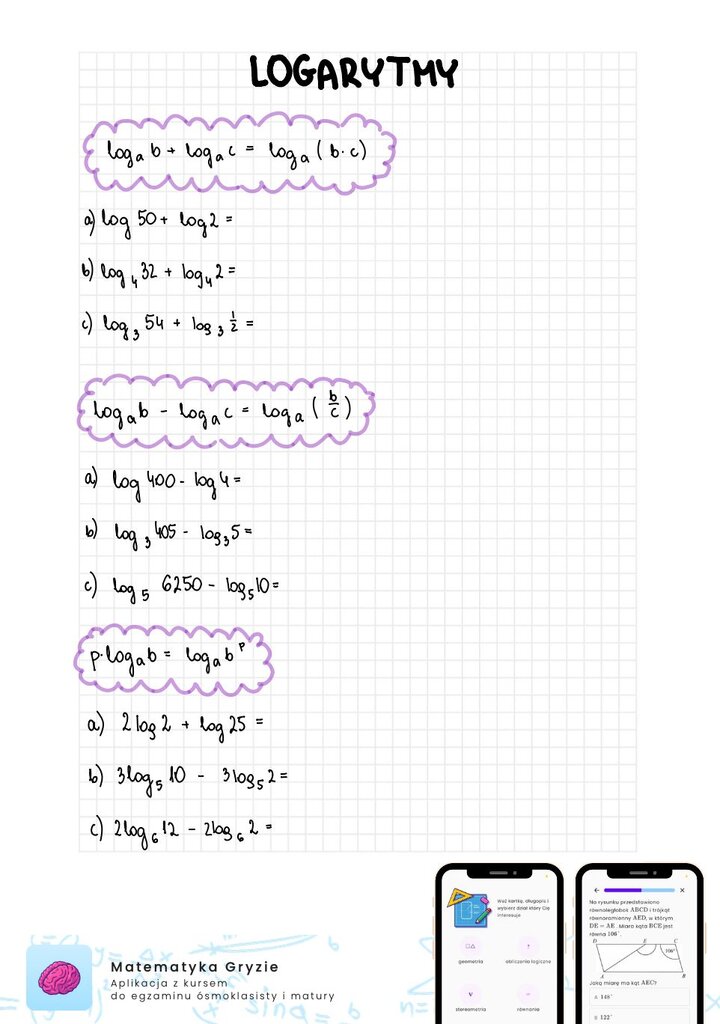 LOGARYTMY
logₐ b + logₐ c = logₐ ( b · c )
a) log 50 + log 2 =
b) log₄ 32 + log₄ 2 =
c) log₃ 54 + log₃ ½ =
logₐ b - logₐ c = logₐ ( b/c )
a) log 400 - log 4 =
b) log₃ 405 - log₃ 5 =
c) log₅ 6250 - log₅ 10 =
p · logₐ b = logₐ bᵖ
a) 2 log 2 + log 25 =
b) 3 log₅ 10 - 3 log₅ 2 =
c) 2 log₆ 12 - 2 log₆ 2 =
Matematyka Gryzie
Aplikacja z kursem
do egzaminu ósmoklasisty i matury
Weź kartkę, długopis i
wybierz dział który Cię
interesuje
geometria
obliczenia logiczne
stereometria
równania
Na rysunku przedstawiono
równoległobok ABCD i trójkąt
równoramienny AED, w którym
DE = AE. Miara kąta BCE jest
równa 106°.
D E C
106°
A B
Jaką miarę ma kąt AEC?
A 148°
B 122°